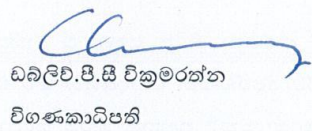 ඩබ්ලිව්.පී.සී වික්‍රමරත්න
විගණකාධිපති